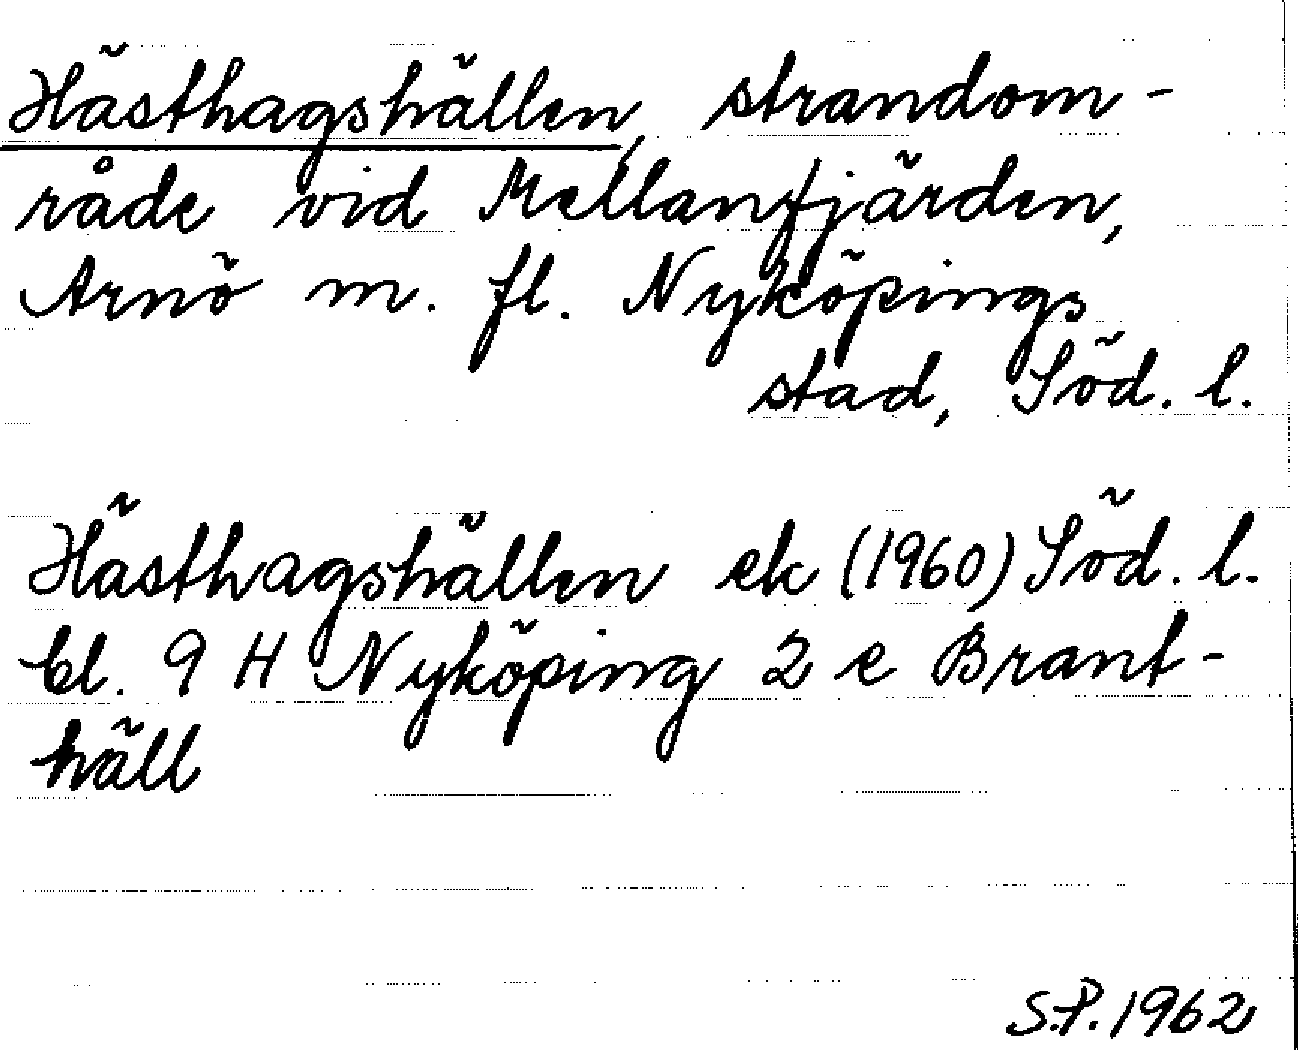 Hästhagshällen, strandom-
råde vid Mellanfjärden,
Arnö m. fl. Nyköpings
stad, Söd. l.
Hästhagshällen ek (1960) Söd. l.
bl. 9 H Nyköping 2 e Brant-
häll
S.P. 1962